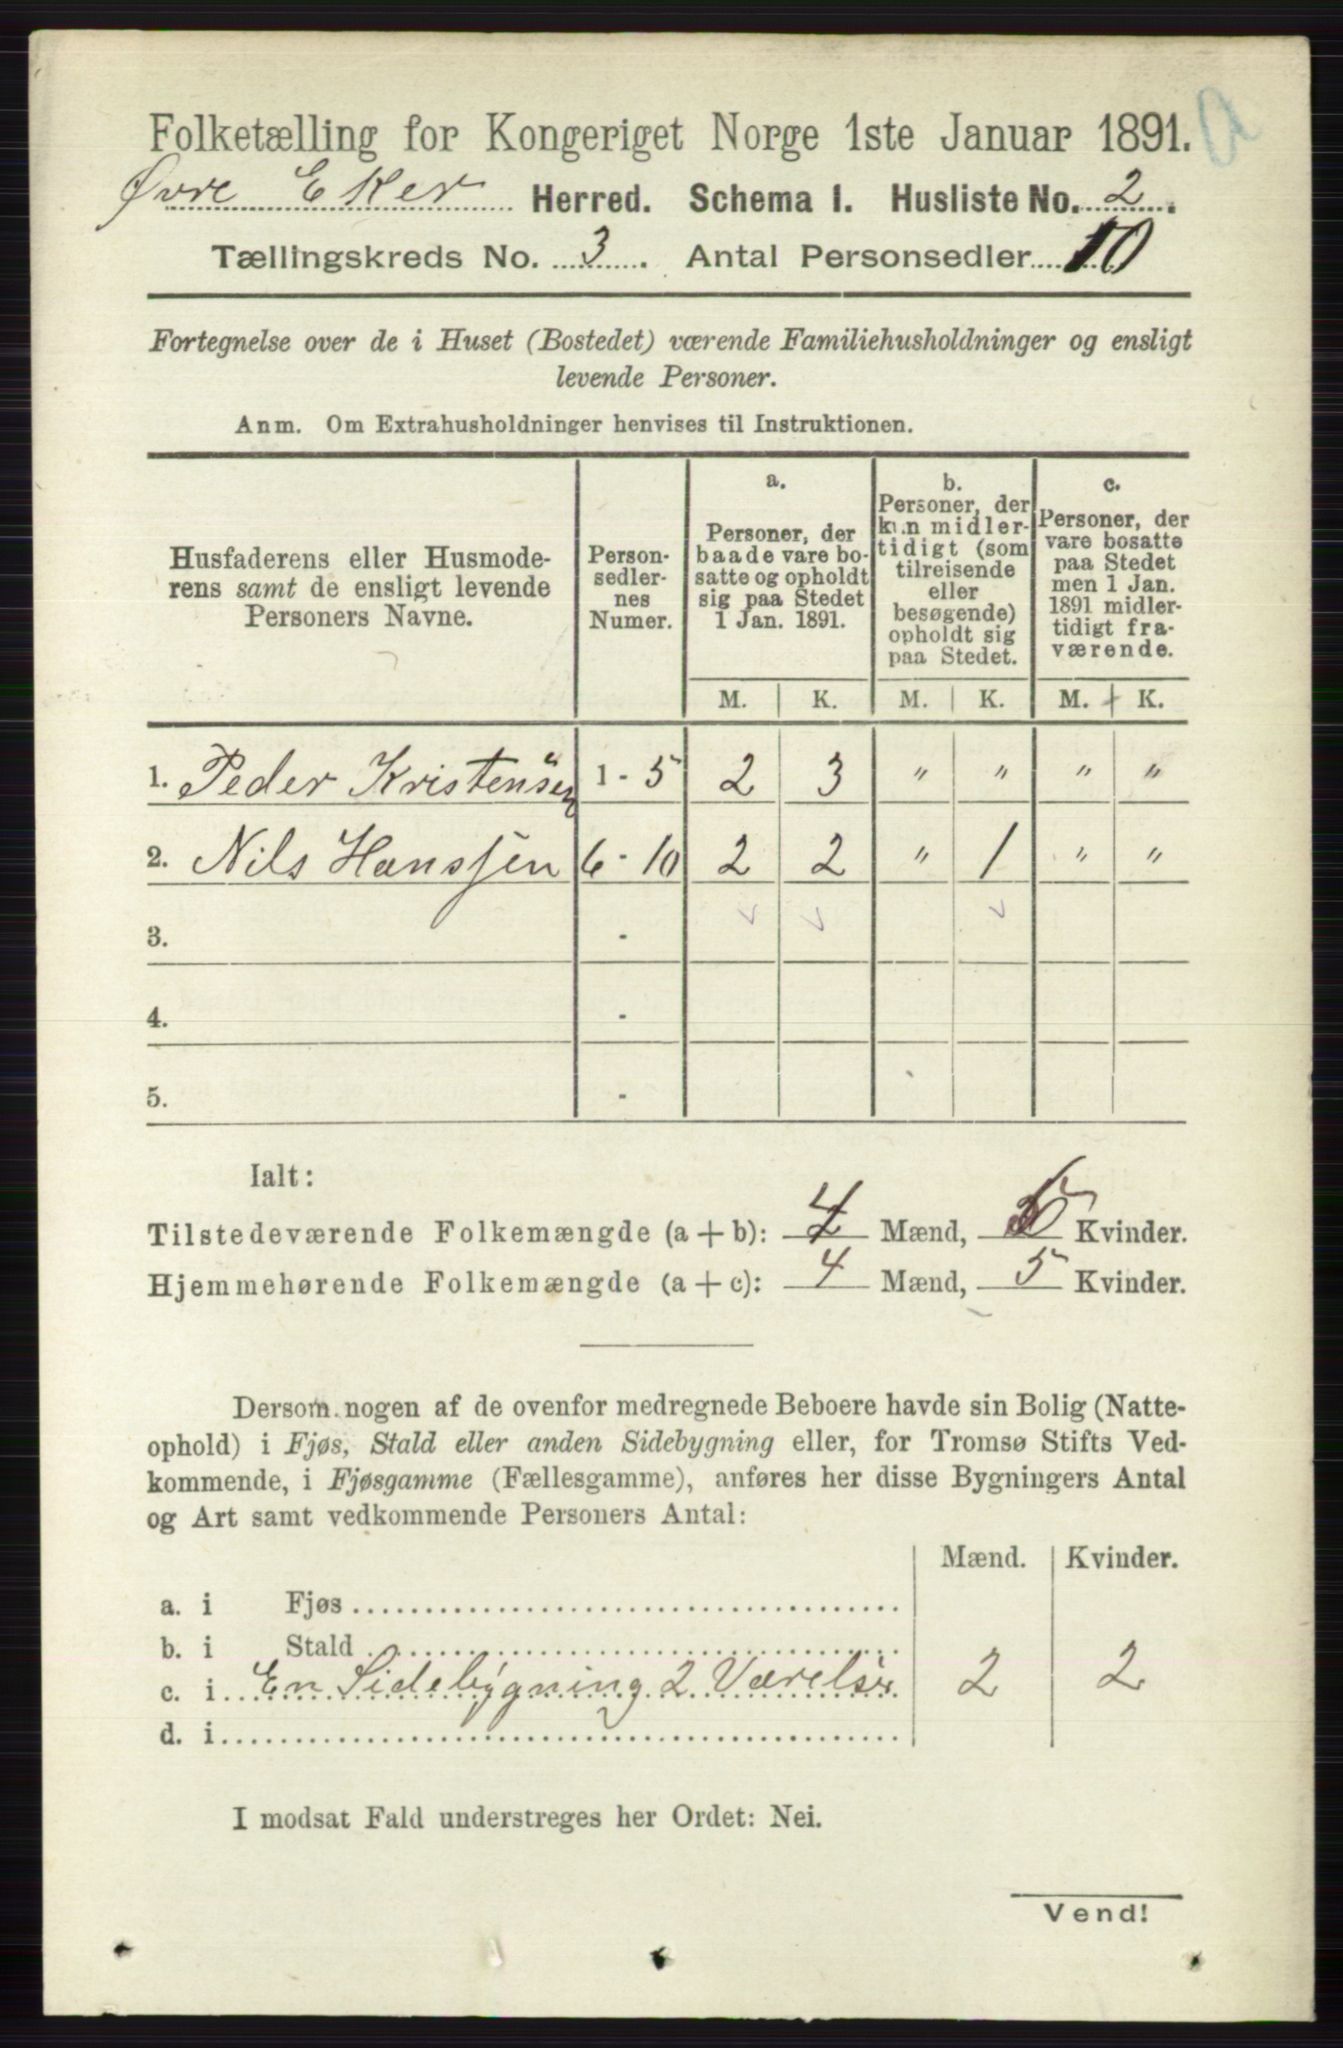 Folketælling for Kongeriget Norge 1ste Januar 1891.
Øvre Eker Herred. Schema I. Husliste No. 2.
Tællingskreds No. 3. Antal Personsedler 10
Fortegnelse over de i Huset (Bostedet) værende Familiehusholdninger og ensligt
levende Personer.
Anm. Om Extrahusholdninger henvises til Instruktionen.
Husfaderens eller Husmode-
rens samt de ensligt levende
Personers Navne.
Person-
sedler-
nes
Numer.
a.
Personer, der
baade vare bo-
satte og opholdt
sig paa Stedet
1 Jan. 1891.
b.
Personer, der
kun midler-
tidigt (som
tilreisende
eller
besøgende)
opholdt sig
paa Stedet.
c.
Personer, der
vare bosatte
paa Stedet
men 1 Jan.
1891 midler-
tidigt fra-
værende.
M. K. M. K. M. K.
1. Peder Kristensen 1 - 5 2 3 " " " "
2. Nils Hanssen 6 - 10 2 2 " 1 " "
3. -
4. -
5. -
Ialt:
Tilstedeværende Folkemængde (a + b): 4 Mænd, Kvinder.
Hjemmehørende Folkemængde (a + c): 4 Mænd, 5 Kvinder.
Dersom nogen af de ovenfor medregnede Beboere havde sin Bolig (Natte-
ophold) i Fjøs, Stald eller anden Sidebygning eller, for Tromsø Stifts Ved-
kommende, i Fjøsgamme (Fællesgamme), anføres her disse Bygningers Antal
og Art samt vedkommende Personers Antal:
Mænd. Kvinder.
a. i Fjøs
b. i Stald
c. i En Sidebygning 2 Værelser 2 2
d. i
I modsat Fald understreges her Ordet: Nei.
Vend!